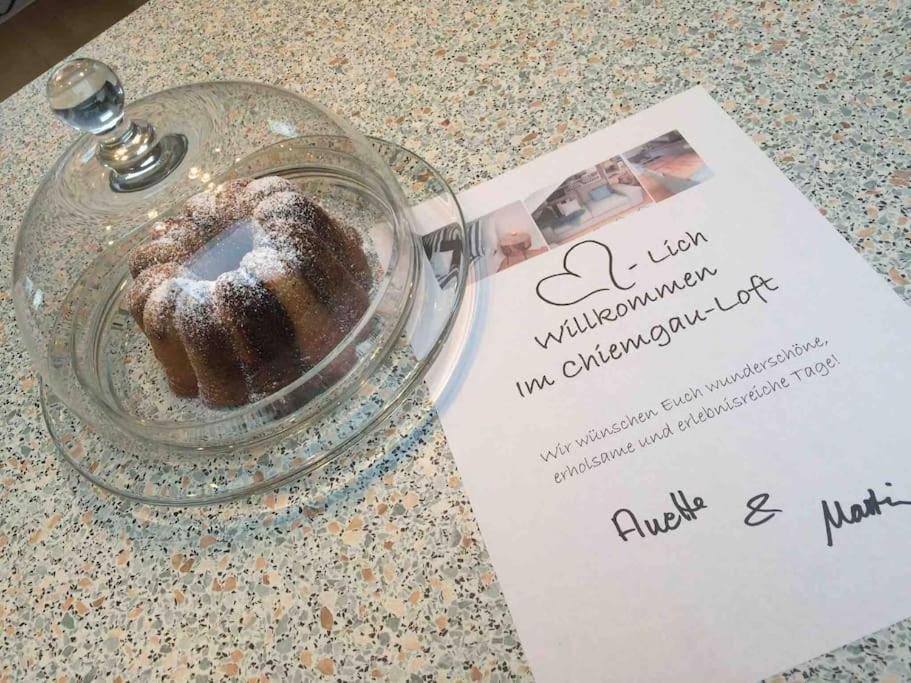 - Lich
Willkommen
Im Chiemgau-Loft
Wir wünschen Euch wunderschöne,
erholsame und erlebnisreiche Tage!
Anette & Martin